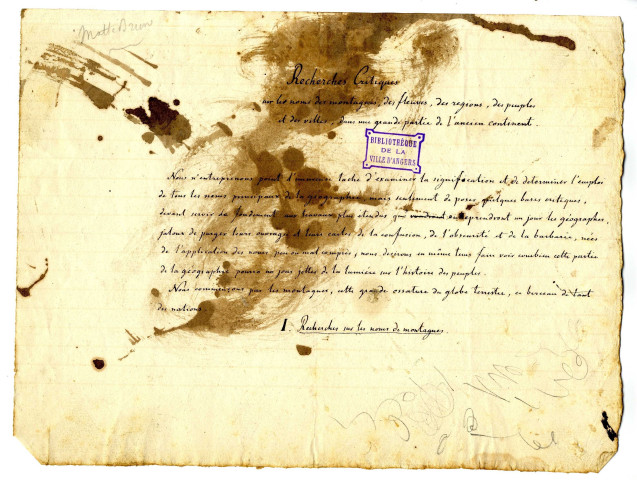 Malte Brun
Recherches Critiques
sur les noms des montagnes, des fleuves, des regions, des peuples
et des villes, dans une grande partie de l'ancien continent.
BIBLIOTHÈQUE
DE LA
VILLE D'ANGERS
Nous n'entreprenons point l'immense tache d'examiner la signification et de determiner l'emploi
de tous les noms principaux de la géographie, mais seulement de poser quelques bases critiques,
devant servir de fondement aux travaux plus étendus, que voudront entreprendront un jour les géographes,
jaloux de purger leurs ouvrages et leurs cartes de la confusion, de l'obscurité et de la barbarie, nées
de l'application des noms peu ou mal compris; nous desirons en même tems faire voir combien cette partie
de la géographie pourra un jour jetter de la lumière sur l'histoire des peuples.
Nous commençons par les montagnes, cette grande ossature du globe terrestre, ce berceau de tant
des nations.
I. Recherches sur les noms de montagnes.